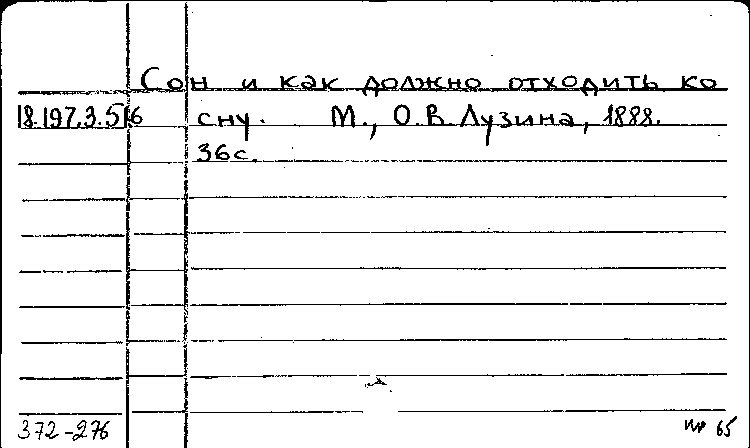 Сон и как должно отходить ко
18.197.3.516 сну. М., О.В. Лузина, 1888.
36с.
372-276
65